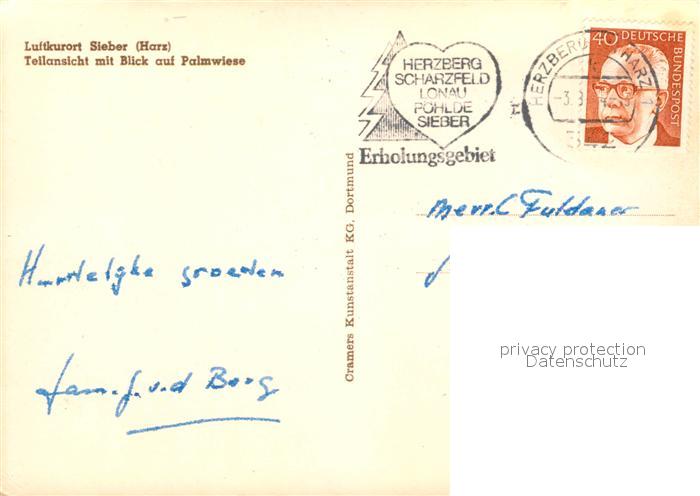 Luftkurort Sieber (Harz)
Teilansicht mit Blick auf Palmwiese
HERZBERG
SCHARZFELD
LONAU
PÖHLDE
SIEBER
Erholungsgebiet
HERZBERG HARZ 1
-3.8.
342
40 DEUTSCHE
BUNDESPOST
Cramers Kunstanstalt KG, Dortmund
Fuldauer
Hartelyke groeten
fam. J. v.d Berg
privacy protection
Datenschutz